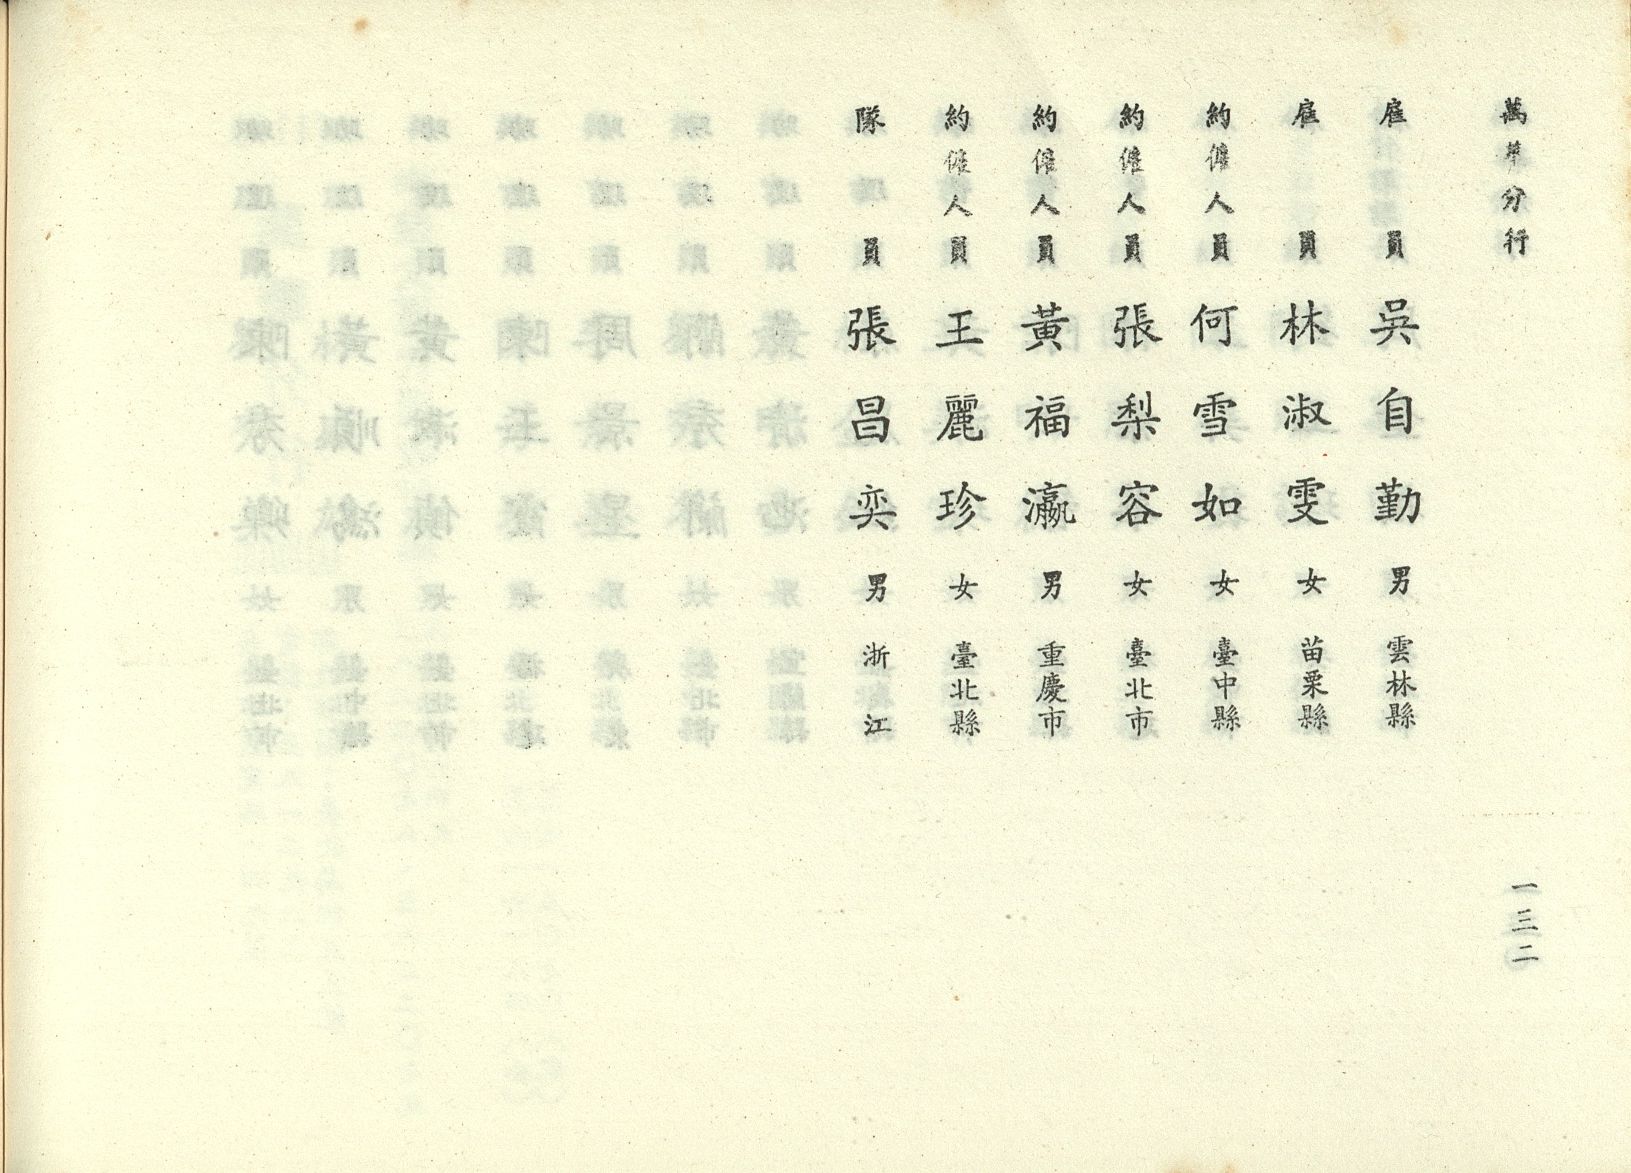 萬華分行
雇員 吳自勤 男 雲林縣
雇員 林淑雯 女 苗栗縣
約僱人員 何雪如 女 臺中縣
約僱人員 張梨容 女 臺北市
約僱人員 黃福瀛 男 重慶市
約僱人員 王麗珍 女 臺北縣
隊員 張昌奕 男 浙江
一三二